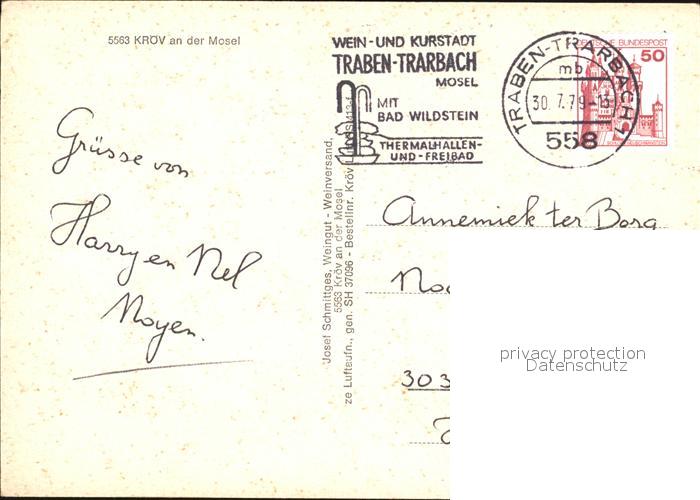 5563 KRÖV an der Mosel
WEIN- UND KURSTADT
TRABEN-TRARBACH
MOSEL
MIT
BAD WILDSTEIN
THERMALHALLEN-
UND-FREIBAD
TRABEN-TRARBACH 1
mb
30.7.79-13
558
DEUTSCHE BUNDESPOST
50
Grüsse von
Harry en Nel
Noyen.
Josef Schmittges, Weingut - Weinversand,
5563 Kröv an der Mosel
ze Luftaufn., gen. SH 37096 - Bestellnr. Kröv
Annemiek ter Borg
303
privacy protection
Datenschutz